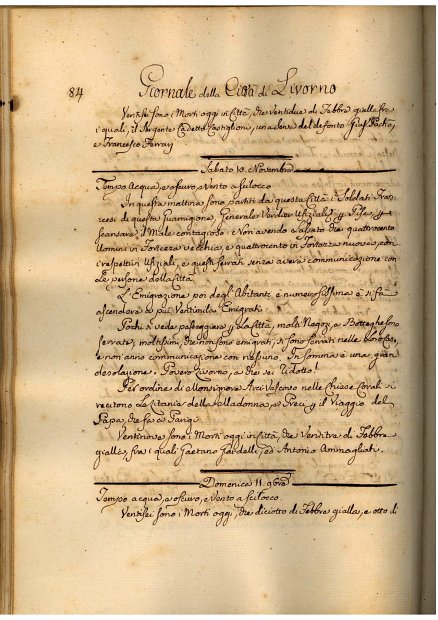 84 Giornale della Città di Livorno
Ventisei sono i Morti oggi in Città, che ventidue di Febbre gialla fra
i quali, il Sergente Cadetto Castiglioni, una del defonto
e Francesco Ferrari
Sabato 10. Novembre
Tempo Acqua, e oscuro, e Vento a scilocco
In questa mattina sono partiti da questa Città i Soldati Fran-
cesi di questa Guarnigione, Generale Verdier Ufiziali p Pisa p
scansare il Male contagioso: e Non avendo lasciato che quattrocento
Uomini in Fortezza vecchia, e quattrocento in Fortezza nuova, con
i respettivi Ufiziali, e questi serrati senza avere communicazione con
le persone della Città
L'Emigrazione poi degl'Abitanti è numerosissima e si fa
ascendere a più Ventimila Emigrati
Pochi si vede passeggiare p la Città, molti Negozi, e Botteghe sono
serrate, moltissimi, che non sono emigrati, si sono serrati nelle loro Case,
e non anno communicazione con nessuno. In somma è una gran
desolazione. Povero Livorno, a che sei ridotto!
Per ordine di Monsignore Arcivescovo nelle Chiese Corali si
recitono le Litanie della Madonna, e Preci p il Viaggio del
Papa, che fa a Parigi.
Ventinove sono i Morti oggi in Città, che Ventitre di Febbre
gialla, fra i quali Gaetano Gardelli, ed Antonio Ammagliati.
Domenica 11. 9bre
Tempo acqua, e oscuro, e Vento a scilocco
Ventisei sono i Morti oggi, che diciotto di Febbre gialla, e otto di